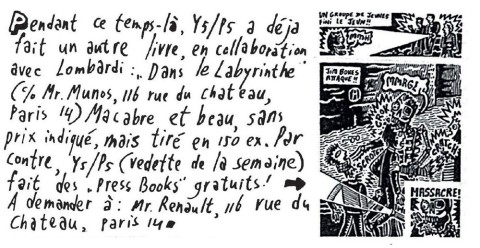 Pendant ce temps-là, Y5/P5 a déja
fait un autre livre, en collaboration
avec Lombardi: „Dans le Labyrinthe"
(c/o Mr. Munos, 116 rue du chateau,
Paris 14) Macabre et beau, sans
prix indiqué, mais tiré en 150 ex. Par
contre, Y5/P5 (vedette de la semaine)
fait des „Press Books" gratuits! ➡
A demander à: Mr. Renault, 116 rue du
Chateau, Paris 14■
UN GROUPE DE JEUNES
FINI LE JEUN!!
JIM BONES
ATTAQUE!!
MMARGL
MASSACRE!